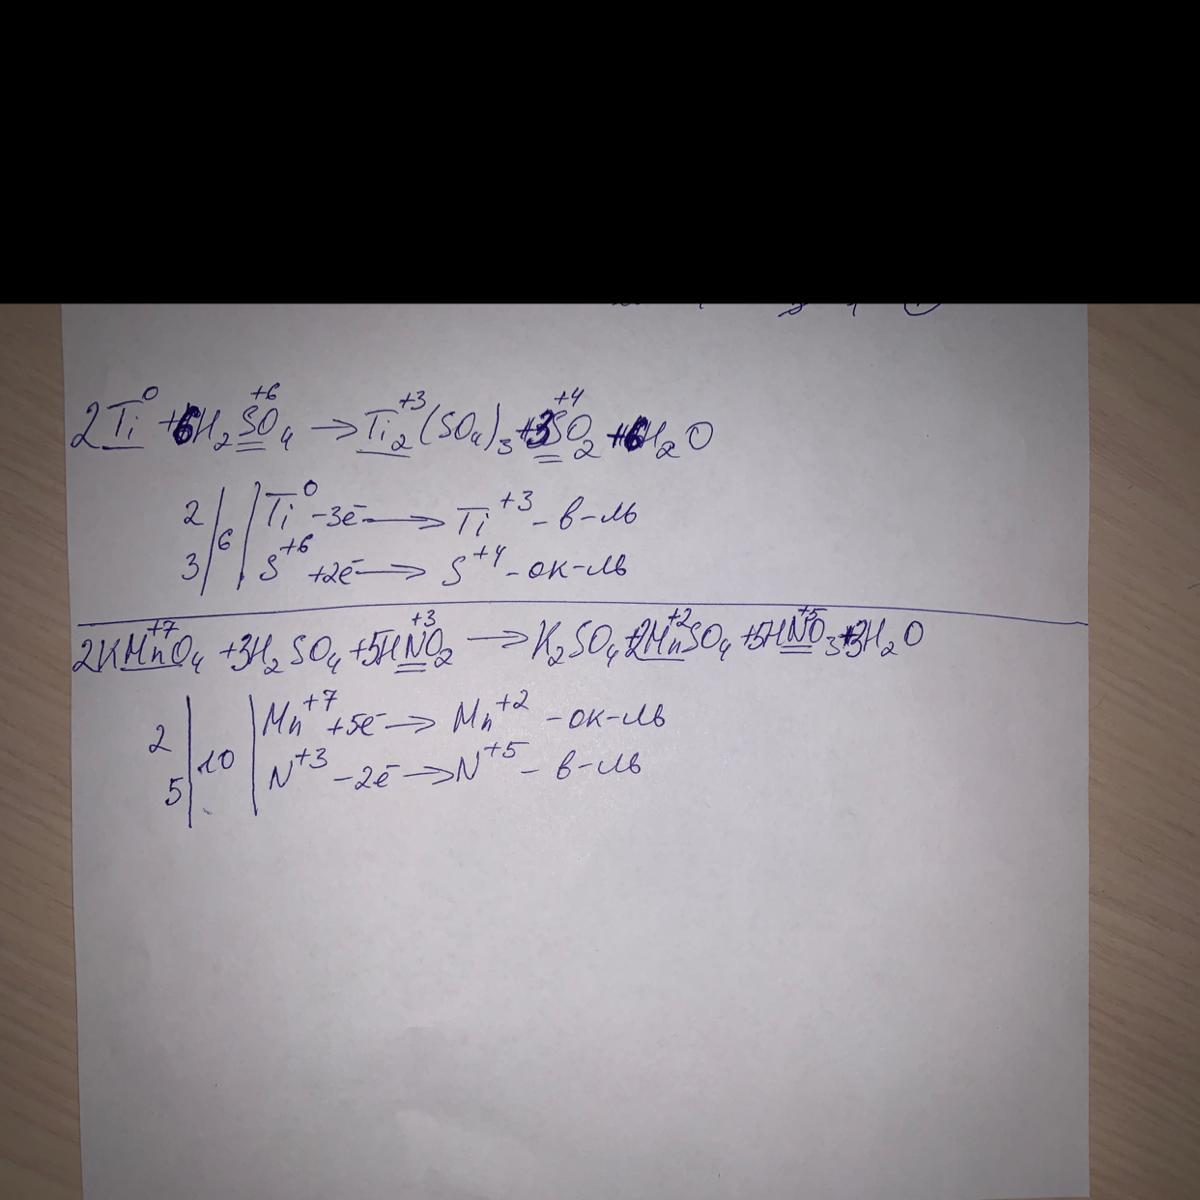 2Ti⁰ + 6H₂S⁺⁶O₄ → Ti₂⁺³(SO₄)₃ + 3S⁺⁴O₂ + 6H₂O
2 | 6 | Ti⁰ -3e⁻ → Ti⁺³ - в-ль
3 | | S⁺⁶ +2e⁻ → S⁺⁴ - ок-ль
2KMn⁺⁷O₄ + 3H₂SO₄ + 5HN⁺³O₂ → K₂SO₄ + 2Mn⁺²SO₄ + 5HN⁺⁵O₃ + 3H₂O
2 | 10 | Mn⁺⁷ +5e⁻ → Mn⁺² - ок-ль
5 | | N⁺³ -2e⁻ → N⁺⁵ - в-ль